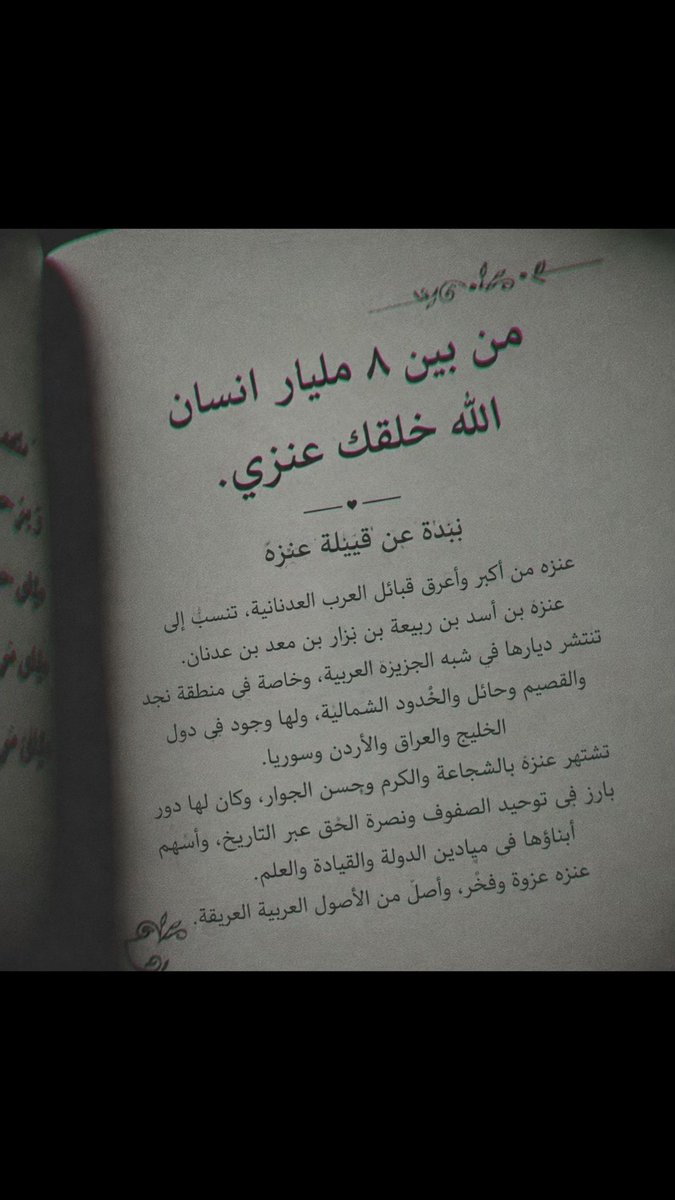 من بين ٨ مليار انسان
الله خلقك عنزي.
نبذة عن قبيلة عنزه
عنزه من أكبر وأعرق قبائل العرب العدنانية، تنسب إلى
عنزة بن أسد بن ربيعة بن نزار بن معد بن عدنان.
تنتشر ديارها في شبه الجزيزة العربية، وخاصة في منطقة نجد
والقصيم وحائل والخدود الشمالية، ولها وجود في دول
الخليج والعراق والأردن وسوريا.
تشتهر عنزة بالشجاعة والكرم وحسن الجوار، وكان لها دور
بارز في توحيد الصفوف ونصرة الحق عبر التاريخ، وأسهم
أبناؤها في ميادين الدولة والقيادة والعلم.
عنزه عزوة وفخر، وأصل من الأصول العربية العريقة.